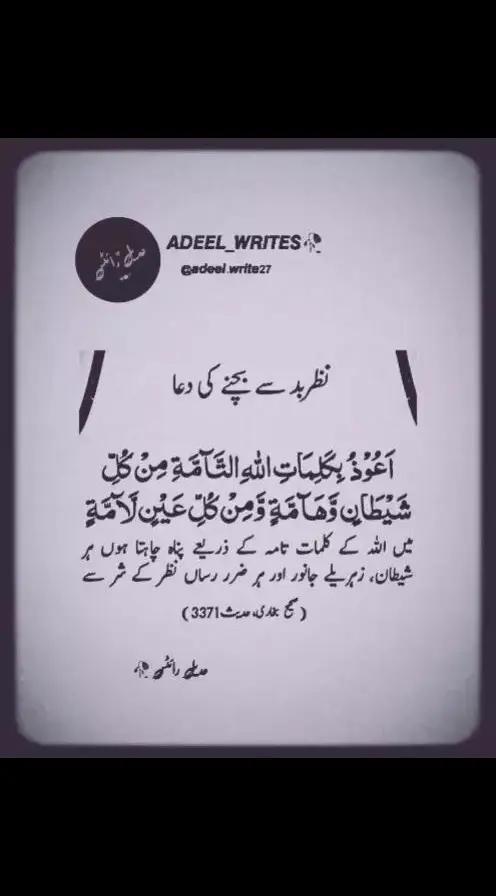 عدیل رائٹس
ADEEL_WRITES🥀
@adeel.write27
نظربد سے بچنے کی دعا
اَعُوْذُ بِكَلِمَاتِ اللهِ التَّآمَّةِ مِنْ كُلِّ
شَيْطَانٍ وَّهَآمَّةٍ وَّمِنْ كُلِّ عَيْنٍ لَّآمَّةٍ
میں اللہ کے کلمات تامہ کے ذریعے پناہ چاہتا ہوں ہر
شیطان، زہریلے جانور اور ہر ضرر رساں نظر کے شر سے
(صحیح بخاری، حدیث 3371)
عدیل رائٹس 🥀